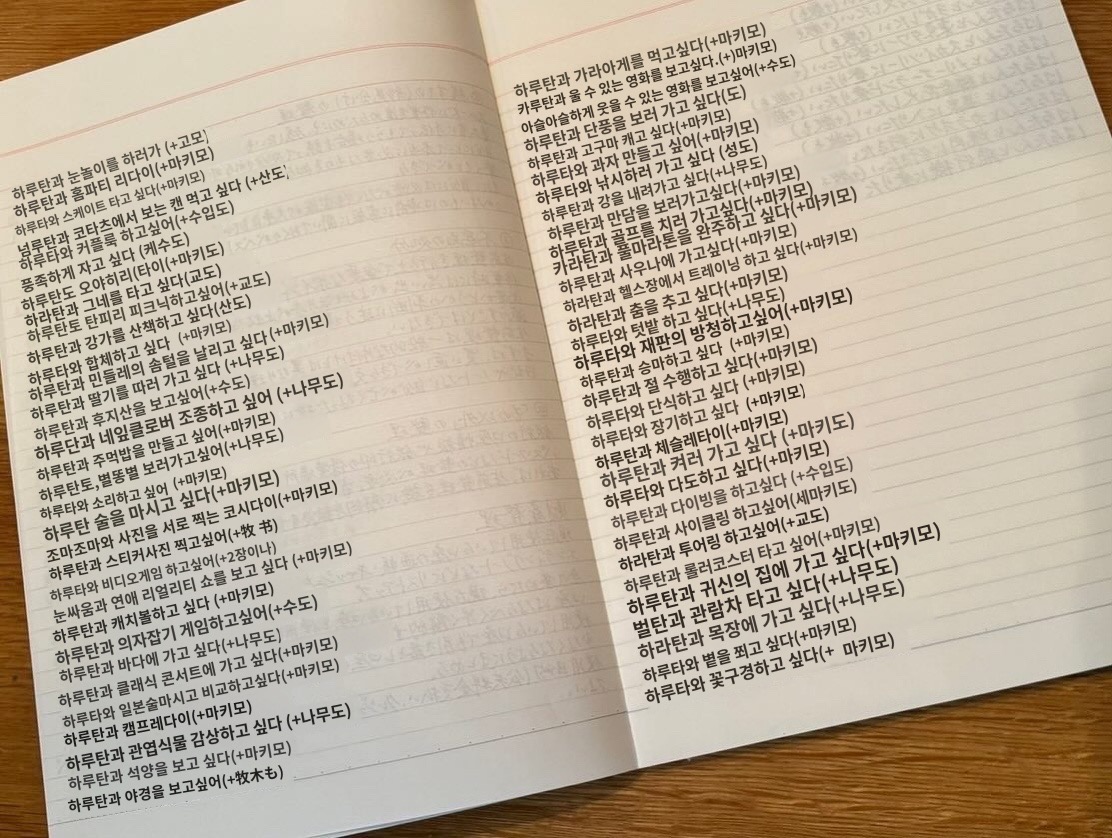 하루탄과 눈놀이를 하러가 (+고모)
하루탄과 홈파티 리다이(+마키모)
하루타와 스케이트 타고 싶다(+마키모)
넘루탄과 코타츠에서 보는 캔 먹고 싶다 (+산도)
하루타와 커플룩 하고싶어(+수입도)
풍족하게 자고 싶다 (케수도)
하루탄도 오야히리(타이(+마키도)
하라탄과 그네를 타고 싶다(교도)
하루탄토 탄피리 피크닉하고싶어(+교도)
하루탄과 강가를 산책하고 싶다(산도)
하루타와 합체하고 싶다 (+마키모)
하루탄과 민들레의 솜털을 날리고 싶다(+마키모)
하루탄과 딸기를 따러 가고 싶다 (+나무도)
하루탄과 후지산을 보고싶어(+수도)
하루단과 네잎클로버 조종하고 싶어 (+나무도)
하루탄과 주먹밥을 만들고 싶어(+마키모)
하루탄토,별똥별 보러가고싶어(+나무도)
하루타와 소리하고 싶어 (+마키모)
하루탄 술을 마시고 싶다(+마키모)
조마조마와 사진을 서로 찍는 코시다이(+마키모)
하루탄과 스티커사진 찍고싶어(+牧 书)
하루타와 비디오게임 하고싶어(+2장이나)
눈싸움과 연애 리얼리티 쇼를 보고 싶다 (+마키모)
하루탄과 캐치볼하고 싶다 (+마키모)
하루탄과 의자잡기 게임하고싶어(+수도)
하루탄과 바다에 가고 싶다(+나무도)
하루탄과 클래식 콘서트에 가고 싶다(+마키모)
하루타와 일본술마시고 비교하고싶다(+마키모)
하루탄과 캠프레다이(+마키모)
하루탄과 관엽식물 감상하고 싶다 (+나무도)
하루탄과 석양을 보고 싶다(+마키모)
하루탄과 야경을 보고싶어(+牧木も)
하루탄과 가라아게를 먹고싶다(+마키모)
카루탄과 울 수 있는 영화를 보고싶다.(+)마키모)
아슬아슬하게 웃을 수 있는 영화를 보고싶어(+수도)
하루탄과 단풍을 보러 가고 싶다(도)
하루탄과 고구마 캐고 싶다(+마키모)
하루타와 과자 만들고 싶어(+마키모)
하루타와 낚시하러 가고 싶다 (성도)
하루탄과 강을 내려가고 싶다(+나무도)
하루탄과 만담을 보러가고싶다(+마키모)
하루탄과 골프를 치러 가고싶다(+마키모)
카라탄과 풀마라톤을 완주하고 싶다(+마키모)
하루탄과 사우나에 가고싶다(+마키모)
하라탄과 헬스장에서 트레이닝 하고 싶다(+마키모)
하라탄과 춤을 추고 싶다(+마키모)
하루타와 텃밭 하고 싶다(+나무도)
하루타와 재판의 방청하고싶어(+마키모)
하루탄과 승마하고 싶다 (+마키모)
하루탄과 절 수행하고 싶다(+마키모)
하루타와 단식하고 싶다 (+마키모)
하루타와 장기하고 싶다 (+마키모)
하루탄과 체슬레타이(+마키모)
하루탄과 켜러 가고 싶다 (+마키도)
하루타와 다도하고 싶다(+마키모)
하루탄과 다이빙을 하고싶다 (+수입도)
하루탄과 사이클링 하고싶어(세마키도)
하라탄과 투어링 하고싶어(+교도)
하루탄과 롤러코스터 타고 싶어(+마키모)
하루탄과 귀신의 집에 가고 싶다(+마키모)
벌탄과 관람차 타고 싶다(+나무도)
하라탄과 목장에 가고 싶다(+나무도)
하루타와 볕을 쬐고 싶다(+마키모)
하루타와 꽃구경하고 싶다(+ 마키모)